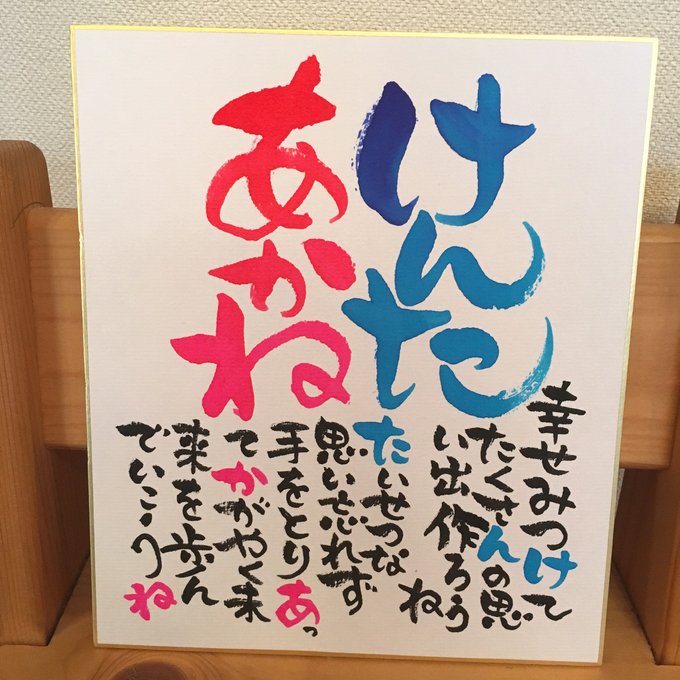 けんた
あかね
幸せみつけて
たくさんの思
い出作ろう
ね
たいせつな
思い忘れず
手をとりあっ
てかがやく未
来を歩ん
でいこうね